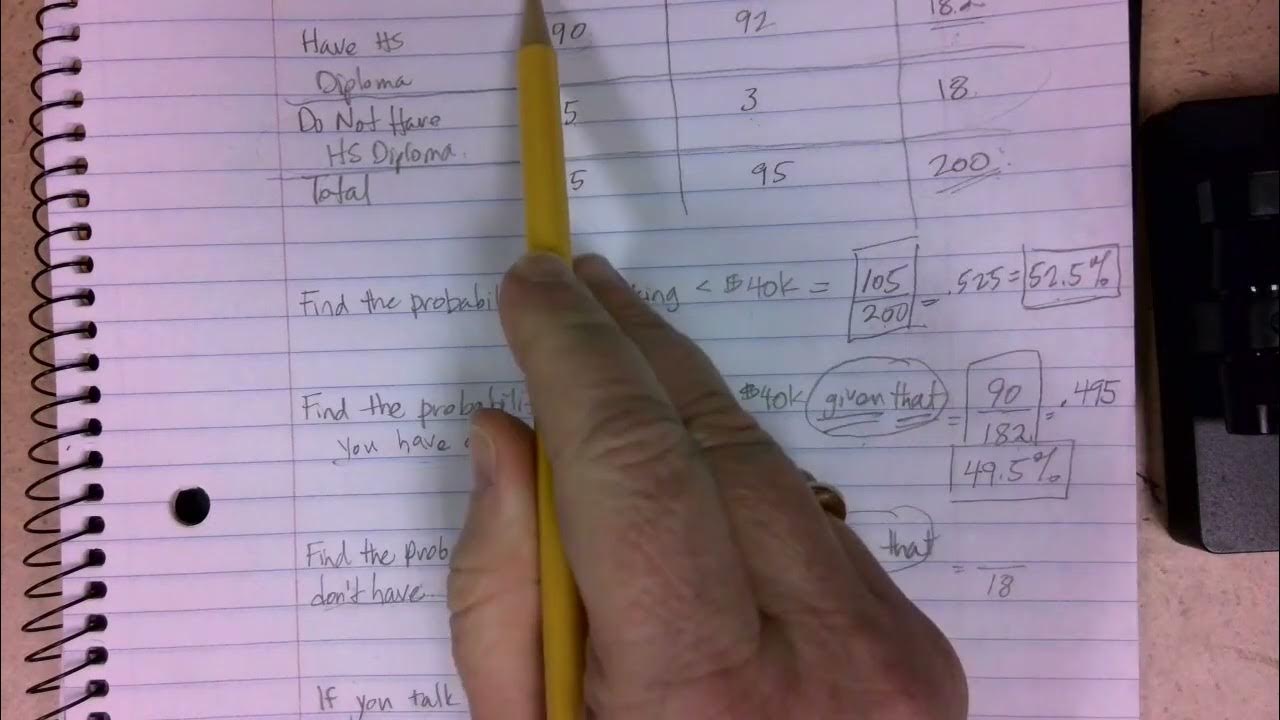 90 92 18.2
Have HS
Diploma
Do Not Have 5 3 18
HS Diploma.
Total 5 95 200
Find the probabil king < $40k = 105/200 = .525 = 52.5%
Find the probabili $40k given that = 90/182 = .495
you have 49.5%
Find the prob that = /18
don't have
If you talk